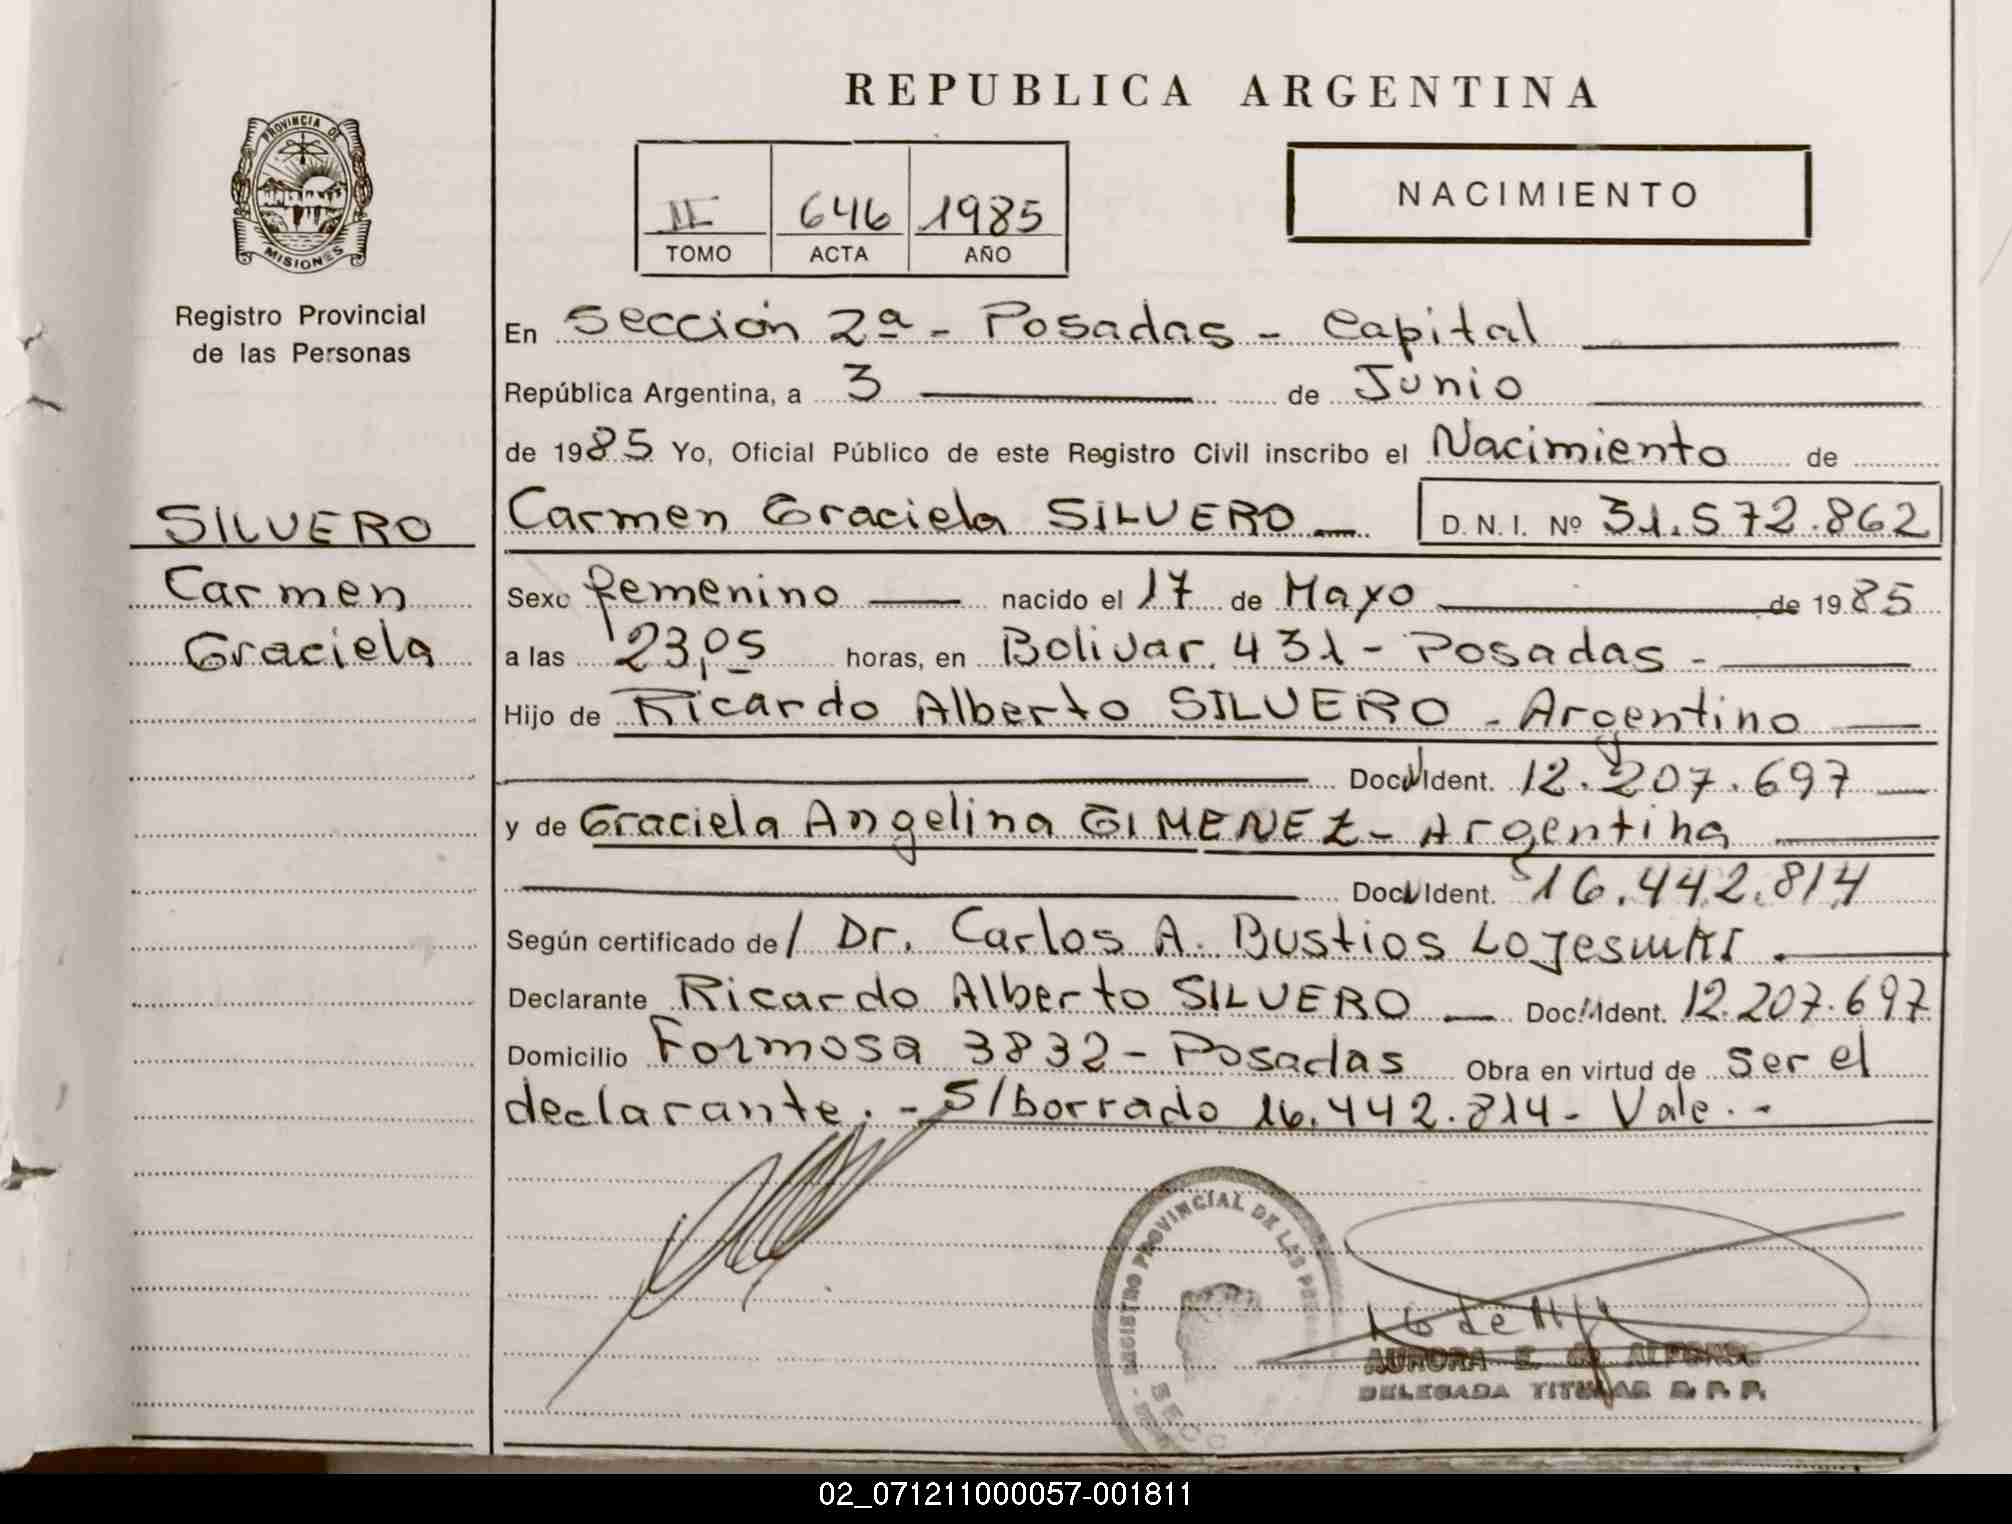 REPUBLICA ARGENTINA
PROVINCIA DE
MISIONES
Registro Provincial
de las Personas
II 646 1985
TOMO ACTA AÑO
NACIMIENTO
SILVERO
Carmen
Graciela
En Sección 2ª - Posadas - Capital
República Argentina, a 3 de Junio
de 1985 Yo, Oficial Público de este Registro Civil inscribo el Nacimiento de
Carmen Graciela SILVERO D. N. I. Nº 31.572.862
Sexo femenino nacido el 17 de Mayo de 1985
a las 23,05 horas, en Bolivar 431 - Posadas -
Hijo de Ricardo Alberto SILVERO - Argentino
Doc. Ident. 12.207.697
y de Graciela Angelina GIMENEZ - Argentina
Doc. Ident. 16.442.814
Según certificado de / Dr. Carlos A. Bustios
Declarante Ricardo Alberto SILVERO Doc. Ident. 12.207.697
Domicilio Formosa 3832 - Posadas Obra en virtud de ser el
declarante. - S/borrado 16.442.814 - Vale. -
REGISTRO PROVINCIAL DE LAS
AURORA E. G. ALFONSO
DELEGADA TITULAR R. P. P.
02_071211000057-001811